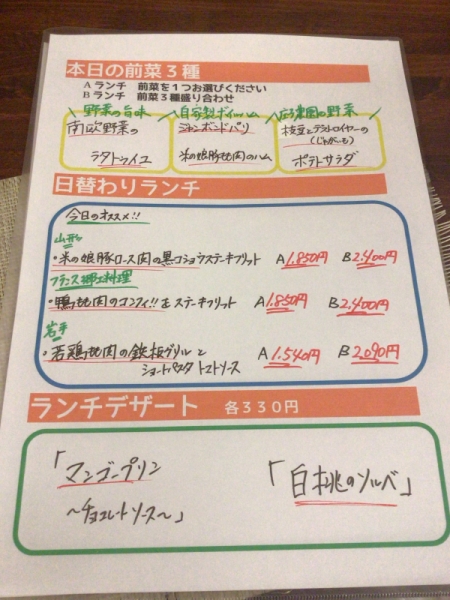 本日の前菜3種
Aランチ 前菜を1つお選びください
Bランチ 前菜3種盛り合わせ
野菜の旨味 自家製ボイルハム の野菜
南欧野菜の
ラタトゥイユ
ジャンボンドパリ
米の娘豚モモ肉のハム
枝豆と
(じゃがいも)
ポテトサラダ
日替わりランチ
今日のオススメ!!
山形
・米の娘豚ロース肉の黒コショウステーキフリット A1.850円 B2.400円
フランス郷土料理
・鴨モモ肉のコンフィ!! をステーキフリット A1.850円 B2,400円
岩手
・若鶏モモ肉の鉄板グリルと A1.540円 B2090円
ショートパスタ トマトソース
ランチデザート 各330円
「マンゴープリン
~チョコレートソース~」
「白桃のソルベ」